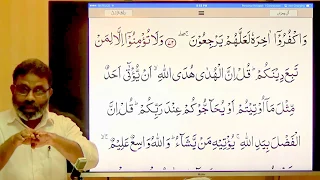 وَاكْفُرُوْۤا اٰخِرَهٗ لَعَلَّهُمْ يَرْجِعُوْنَ ۚۖ ﴿۷۲﴾ وَلَا تُؤْمِنُوْۤا اِلَّا لِمَنْ
تَبِعَ دِيْنَكُمْ ؕ قُلْ اِنَّ الْهُدٰى هُدَى اللّٰهِ ۙ اَنْ يُّؤْتٰۤى اَحَدٌ
مِّثْلَ مَاۤ اُوْتِيْتُمْ اَوْ يُحَآجُّوْكُمْ عِنْدَ رَبِّكُمْ ؕ قُلْ اِنَّ
الْفَضْلَ بِيَدِ اللّٰهِ ۚ يُؤْتِيْهِ مَنْ يَّشَآءُ ؕ وَاللّٰهُ وَاسِعٌ عَلِيْمٌ